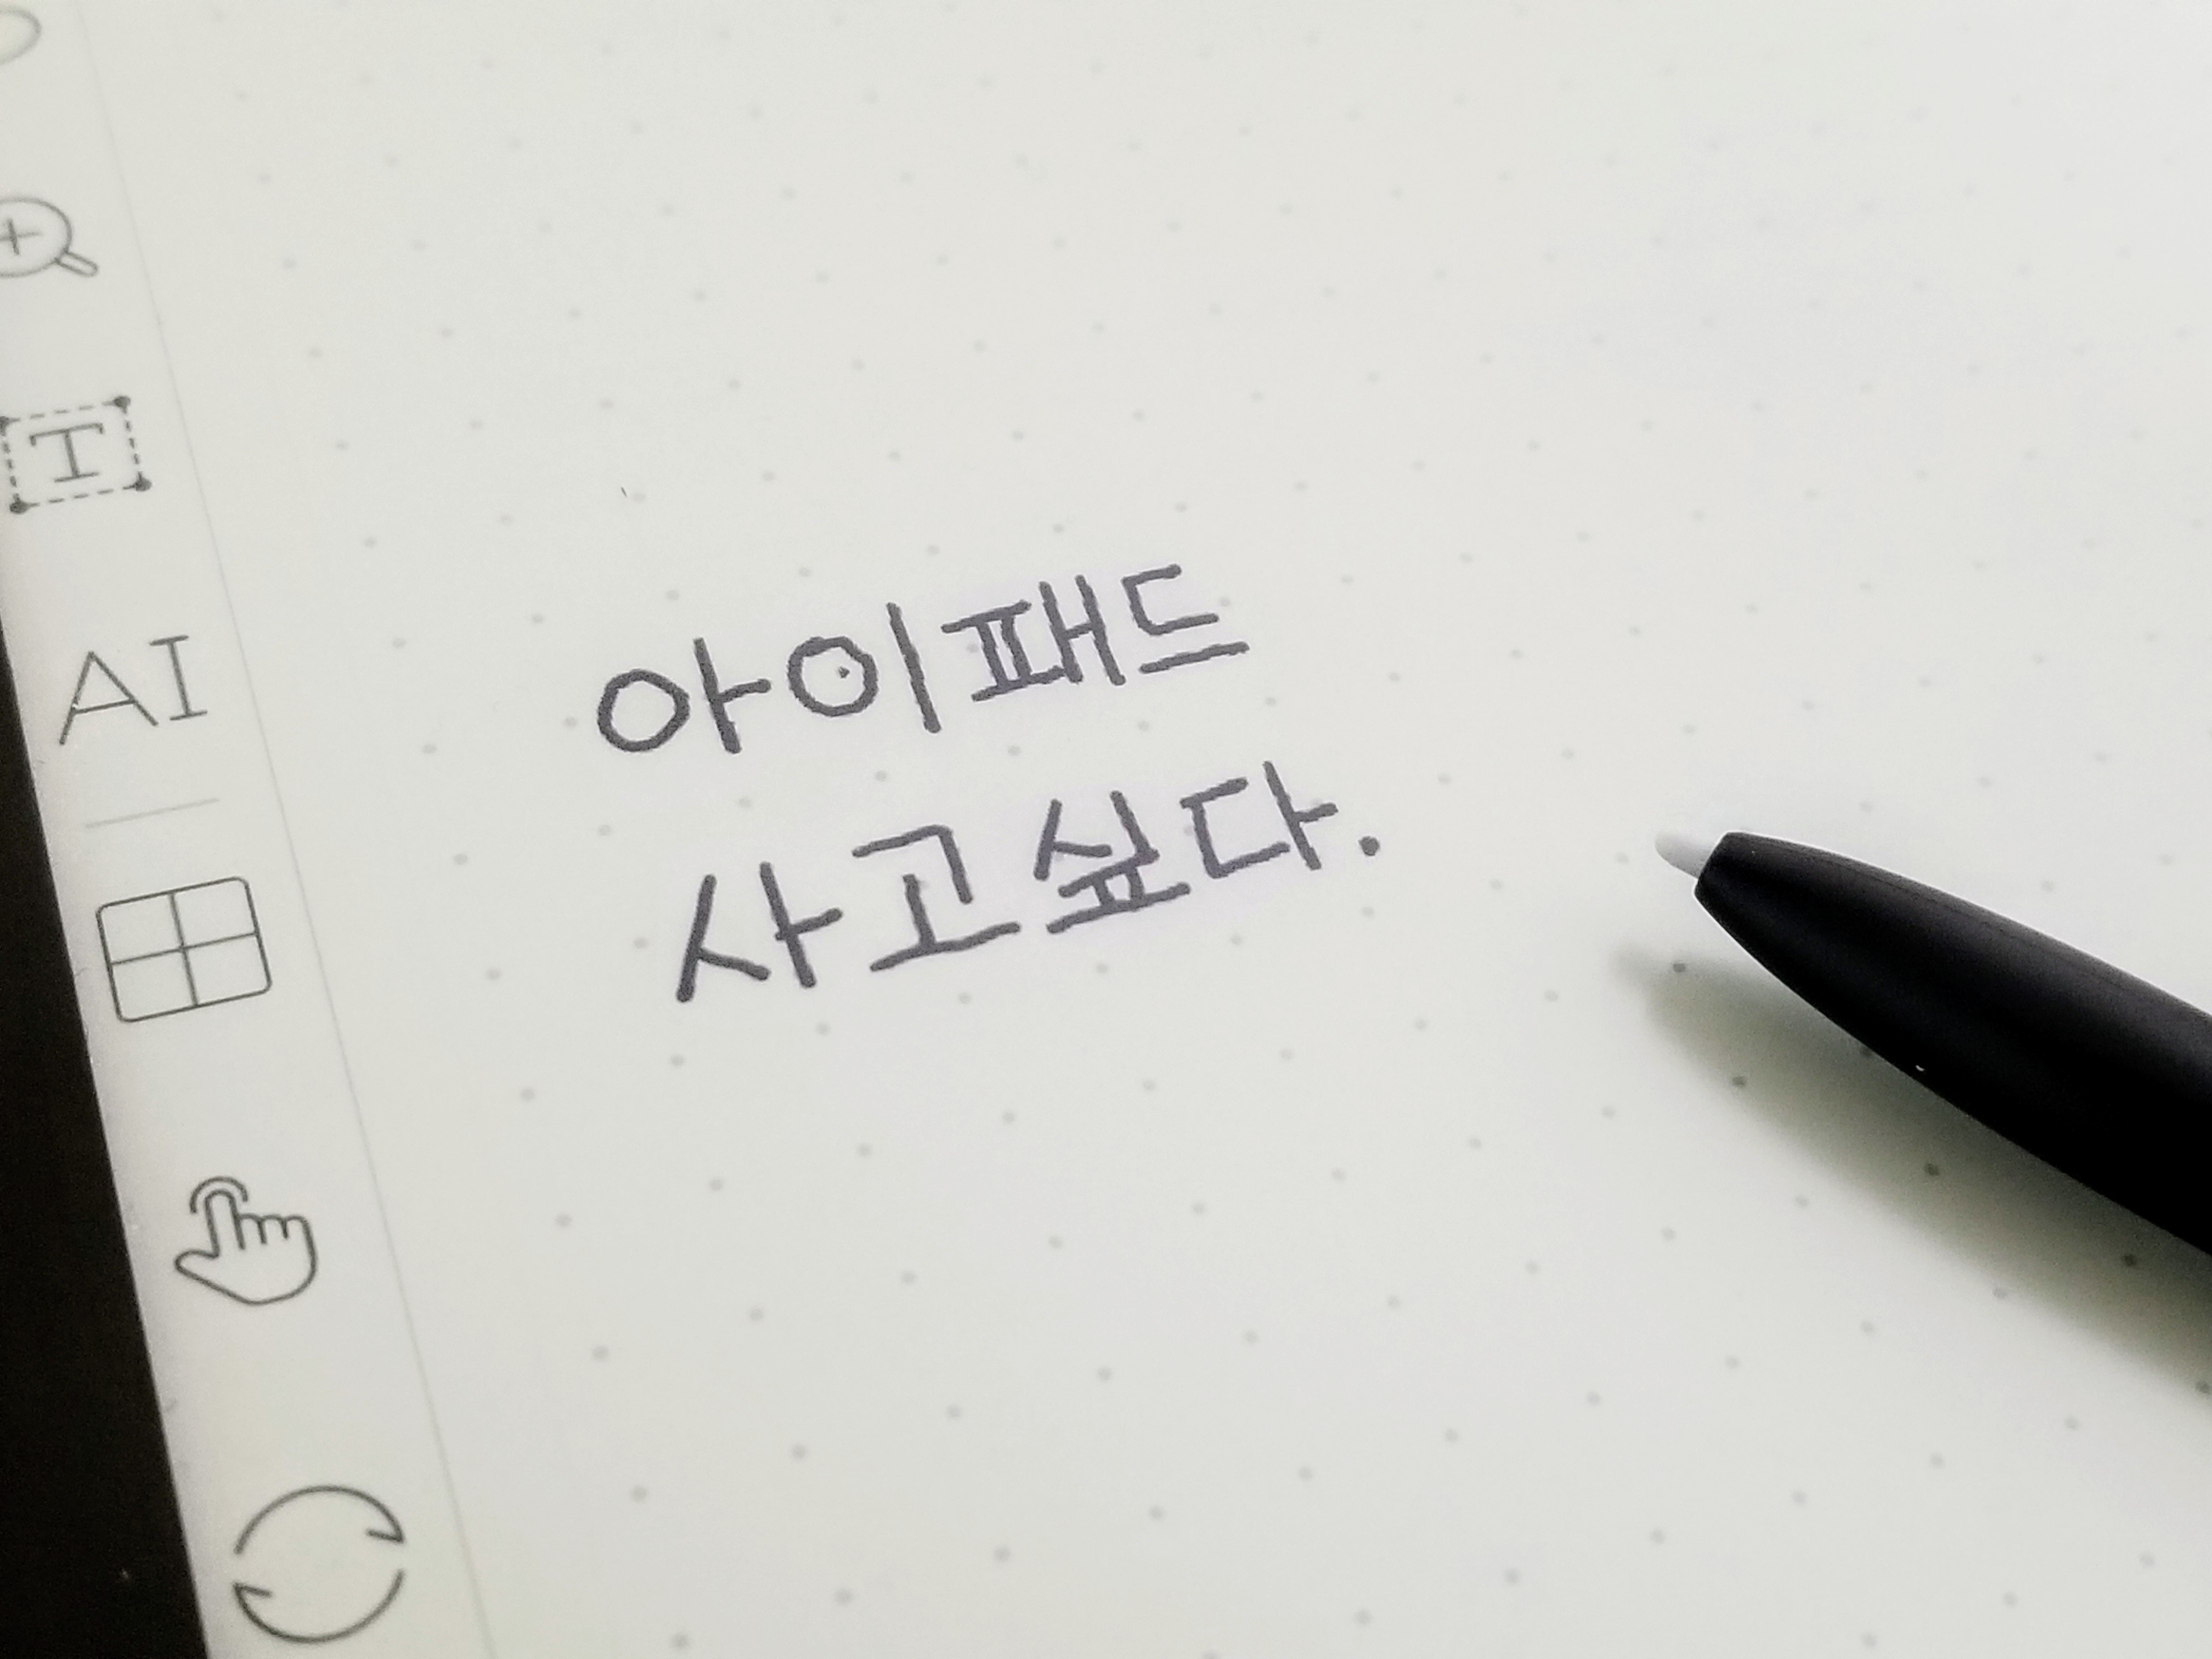 T
AI
아이패드
사고싶다.